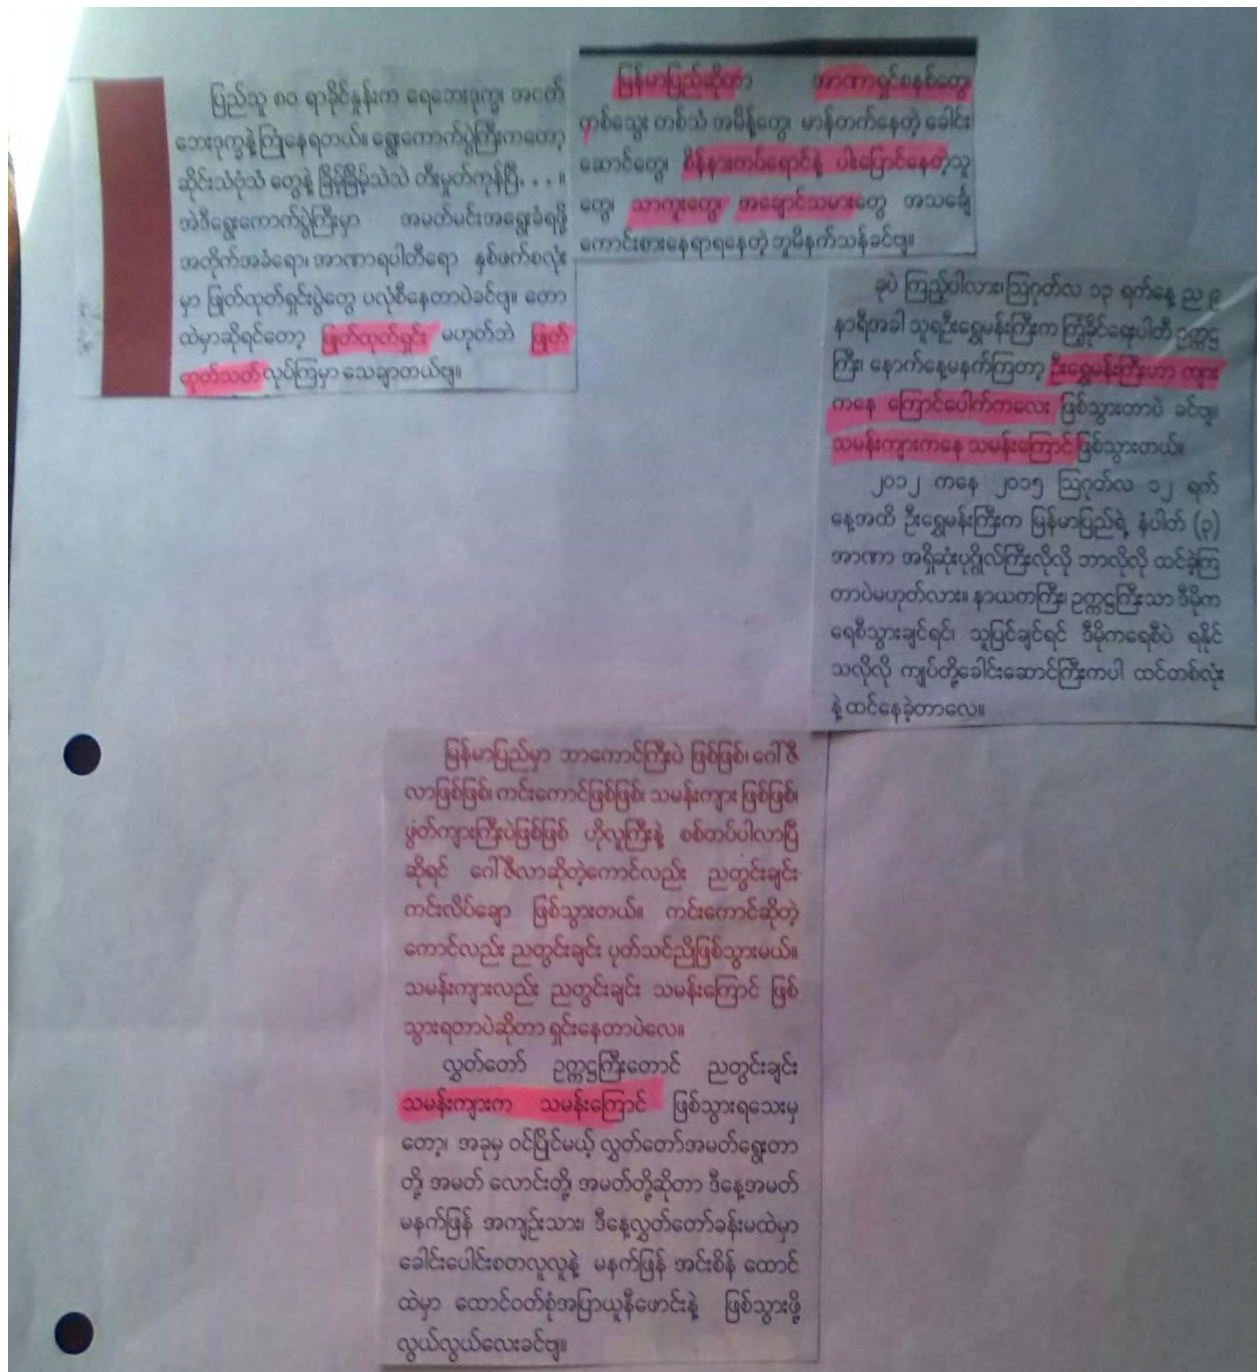 ပြည်သူ ၈၀ ရာခိုင်နှုန်းက ရေဘေးဒုက္ခ၊ အငတ်
ဘေးဒုက္ခနဲ့ကြုံနေရတယ်။ ရွေးကောက်ပွဲကြီးကတော့
ဆိုင်းသံဗုံသံ တွေနဲ့ ခြိမ့်ခြိမ့်သဲသဲ တီးမှုတ်ကုန်ပြီ. . . ။
အဲဒီရွေးကောက်ပွဲကြီးမှာ အမတ်မင်းအရွေးခံရဖို့
အတိုက်အခံရော၊ အာဏာရပါတီရော နှစ်ဖက်စလုံး
မှာ ဖြုတ်ထုတ်ရှင်းပွဲတွေ ပလုံစီနေတာပဲခင်ဗျ။ တော
ထဲမှာဆိုရင်တော့ ဖြုတ်ထုတ်ရှင်း မဟုတ်ဘဲ ဖြုတ်
ထုတ်သတ် လုပ်ကြမှာ သေချာတယ်ဗျ။
မြန်မာပြည်ဆိုတာ အာဏာရှင်စနစ်တွေ၊
တစ်သွေး တစ်သံ အမိန့်တွေ၊ မာန်တက်နေတဲ့ ခေါင်း
ဆောင်တွေ၊ စိန်နားကပ်ရောင်နဲ့ ပါးပြောင်နေတဲ့သူ
တွေ၊ သာကူးတွေ၊ အချောင်သမားတွေ အသချေၤ
ကောင်းစားနေရာရနေတဲ့ ဘူမိနက်သန်ခင်ဗျ။
ခုပဲ ကြည့်ပါလား၊ ဩဂုတ်လ ၁၃ ရက်နေ့ ည ၉
နာရီအခါ သူရဦးရွှေမန်းကြီးက ကြံ့ခိုင်ရေးပါတီ ဥက္ကဋ္ဌ
ကြီး၊ နောက်နေ့မနက်ကြတော့ ဦးရွှေမန်းကြီးဟာ ကျား
ကနေ ကြောင်ပေါက်ကလေး ဖြစ်သွားတာပဲ ခင်ဗျ။
သမန်းကျားကနေ သမန်းကြောင် ဖြစ်သွားတယ်။
၂၀၁၂ ကနေ ၂၀၁၅ ဩဂုတ်လ ၁၂ ရက်
နေ့အထိ ဦးရွှေမန်းကြီးက မြန်မာပြည်ရဲ့ နံပါတ် (၃)
အာဏာ အရှိဆုံးပုဂ္ဂိုလ်ကြီးလိုလို ဘာလိုလို ထင်ခဲ့ကြ
တာပဲမဟုတ်လား။ နာယကကြီး၊ ဥက္ကဋ္ဌကြီးသာ ဒီမိုက
ရေစီသွားချင်ရင်၊ သူပြင်ချင်ရင် ဒီမိုကရေစီပဲ ရနိုင်
သလိုလို ကျုပ်တို့ခေါင်းဆောင်ကြီးကပါ ထင်တစ်လုံး
နဲ့ ထင်နေခဲ့တာလေ။
မြန်မာပြည်မှာ ဘာကောင်ကြီးပဲ ဖြစ်ဖြစ်၊ ဂေါ်ဇီ
လာဖြစ်ဖြစ်၊ ကင်းကောင်ဖြစ်ဖြစ်၊ သမန်းကျား ဖြစ်ဖြစ်၊
ဖွတ်ကျားကြီးပဲဖြစ်ဖြစ် ဟိုလူကြီးနဲ့ စစ်တပ်ပါလာပြီ
ဆိုရင် ဂေါ်ဇီလာဆိုတဲ့ကောင်လည်း ညတွင်းချင်း
ကင်းလိပ်ချော ဖြစ်သွားတယ်။ ကင်းကောင်ဆိုတဲ့
ကောင်လည်း ညတွင်းချင်း ပုတ်သင်ညိုဖြစ်သွားမယ်။
သမန်းကျားလည်း ညတွင်းချင်း သမန်းကြောင် ဖြစ်
သွားရတာပဲဆိုတာ ရှင်းနေတာပဲလေ။
လွှတ်တော် ဥက္ကဋ္ဌကြီးတောင် ညတွင်းချင်း
သမန်းကျားက သမန်းကြောင် ဖြစ်သွားရသေးမှ
တော့၊ အခုမှ ဝင်ပြိုင်မယ့် လွှတ်တော်အမတ်ရွေးတာ
တို့ အမတ် လောင်းတို့၊ အမတ်တို့ဆိုတာ ဒီနေ့အမတ်
မနက်ဖြန် အကျဉ်းသား၊ ဒီနေ့လွှတ်တော်ခန်းမထဲမှာ
ခေါင်းပေါင်းစတလူလူနဲ့ မနက်ဖြန် အင်းစိန် ထောင်
ထဲမှာ ထောင်ဝတ်စုံအပြာယူနီဖောင်းနဲ့ ဖြစ်သွားဖို့
လွယ်လွယ်လေးခင်ဗျ။